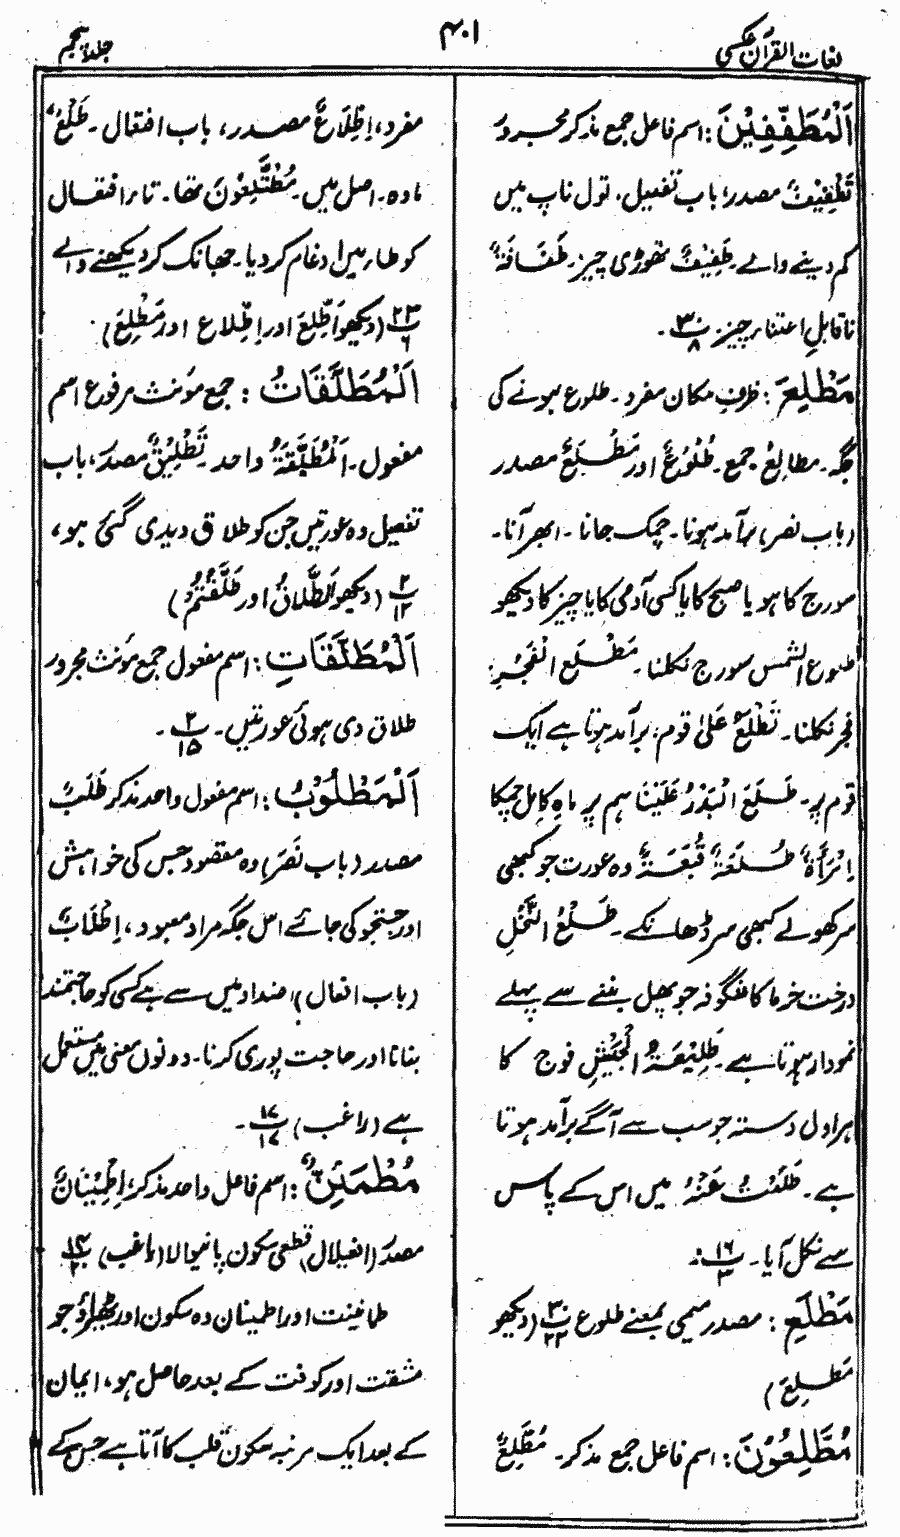 لغات القرآن عکسی
۴۰۱
جلد پنجم
اَلْمُطَفِّفِیْنَ: اسم فاعل جمع مذکر مجرور
تَطْفِیْفٌ مصدر، باب تفعیل. تول ناپ میں
کم دینے والے۔ طَفِیْفٌ تھوڑی چیز۔ طَفَافَۃٌ
ناقابلِ اعتناء چیز۔ ۳۰/۸ ۔
مَطْلِعَ: ظرف مکان مفرد۔ طلوع ہونے کی
جگہ۔ مطالِعُ جمع۔ طُلُوْعٌ اور مَطْلَعٌ مصدر
(باب نصر) برآمد ہونا۔ چمک جانا۔ ابھر آنا۔
سورج کا ہو یا صبح کا یا کسی آدمی کا یا چیز کا دیکھو
طلوع الشمس سورج نکلنا۔ مَطْلَع الْفَجْرِ
فجر نکلنا۔ تَطْلَعُ عَلیٰ قوم، برآمد ہوتا ہے ایک
قوم پر۔ طَلَعَ الْبَدْرُ عَلَیْنَا ہم پر ماہِ کامل چمکا
اِمْرَأَۃٌ طُلَعَۃٌ قُبَعَۃٌ وہ عورت جو کبھی
سر کھولے کبھی سر ڈھانکے۔ طَلْعُ النَّخْلِ
درخت خرما کا شگوفہ جو پھل بننے سے پہلے
نمودار ہوتا ہے۔ طَلِیْعَۃُ الْجَیْشِ فوج کا
ہراول دستہ جو سب سے آگے برآمد ہوتا
ہے۔ طَلَعْتُ عَنْہُ میں اس کے پاس
سے نکل آیا۔ ۱۶/۳ ۔
مَطْلَعِ: مصدر میمی بمعنے طلوع ۳۰/۲۲ (دیکھو
مَطْلِعَ)
مُطَّلِعُوْنَ: اسم فاعل جمع مذکر۔ مُطَّلِعٌ
مفرد، اِطِّلَاعٌ مصدر، باب افتعال۔ طَلْعٌ
مادہ۔ اصل میں۔ مُطْتَلِعُوْنَ تھا۔ تاء افتعال
کو طاء میں ادغام کر دیا۔ جھانک کر دیکھنے والے
۲۳/۶ (دیکھو اَطَّلِعَ اور اِطِّلاع اور مَطْلِعَ)
اَلْمُطَلَّقَاتُ: جمع مؤنث مرفوع اسم
مفعول۔ اَلْمُطَلَّقَۃُ واحد۔ تَطْلِیْقٌ مصدر، باب
تفعیل وہ عورتیں جن کو طلاق دیدی گئی ہو،
۲/۱۲ (دیکھو اَلطَّلَاقُ اور طَلَّقْتُمْ)
اَلْمُطَلَّقَاتِ: اسم مفعول جمع مؤنث مجرور
طلاق دی ہوئی عورتیں۔ ۲/۱۵ ۔
اَلْمَطْلُوْبُ: اسم مفعول واحد مذکر طَلَبٌ
مصدر (باب نَصَرَ) وہ مقصود جس کی خواہش
اور جستجو کی جائے اس جگہ مراد معبود، اِطْلَابٌ
(باب افعال) اضداد میں سے ہے کسی کو حاجتمند
بنانا اور حاجت پوری کرنا۔ دونوں معنی میں مستعمل
ہے (راغب) ۱۷/۱۷ ۔
مُطْمَئِنٌّ: اسم فاعل واحد مذکر، اِطْمِیْنَانٌ
مصدر (افعیلال) قطعی سکون پانیوالا (راغب) ۱۴/۲۰
طمانینت اور اطمینان وہ سکون اور ٹھہراؤ جو
مشقت اور کوفت کے بعد حاصل ہو، ایمان
کے بعد ایک مرتبہ سکون قلب کا آتا ہے جس کے